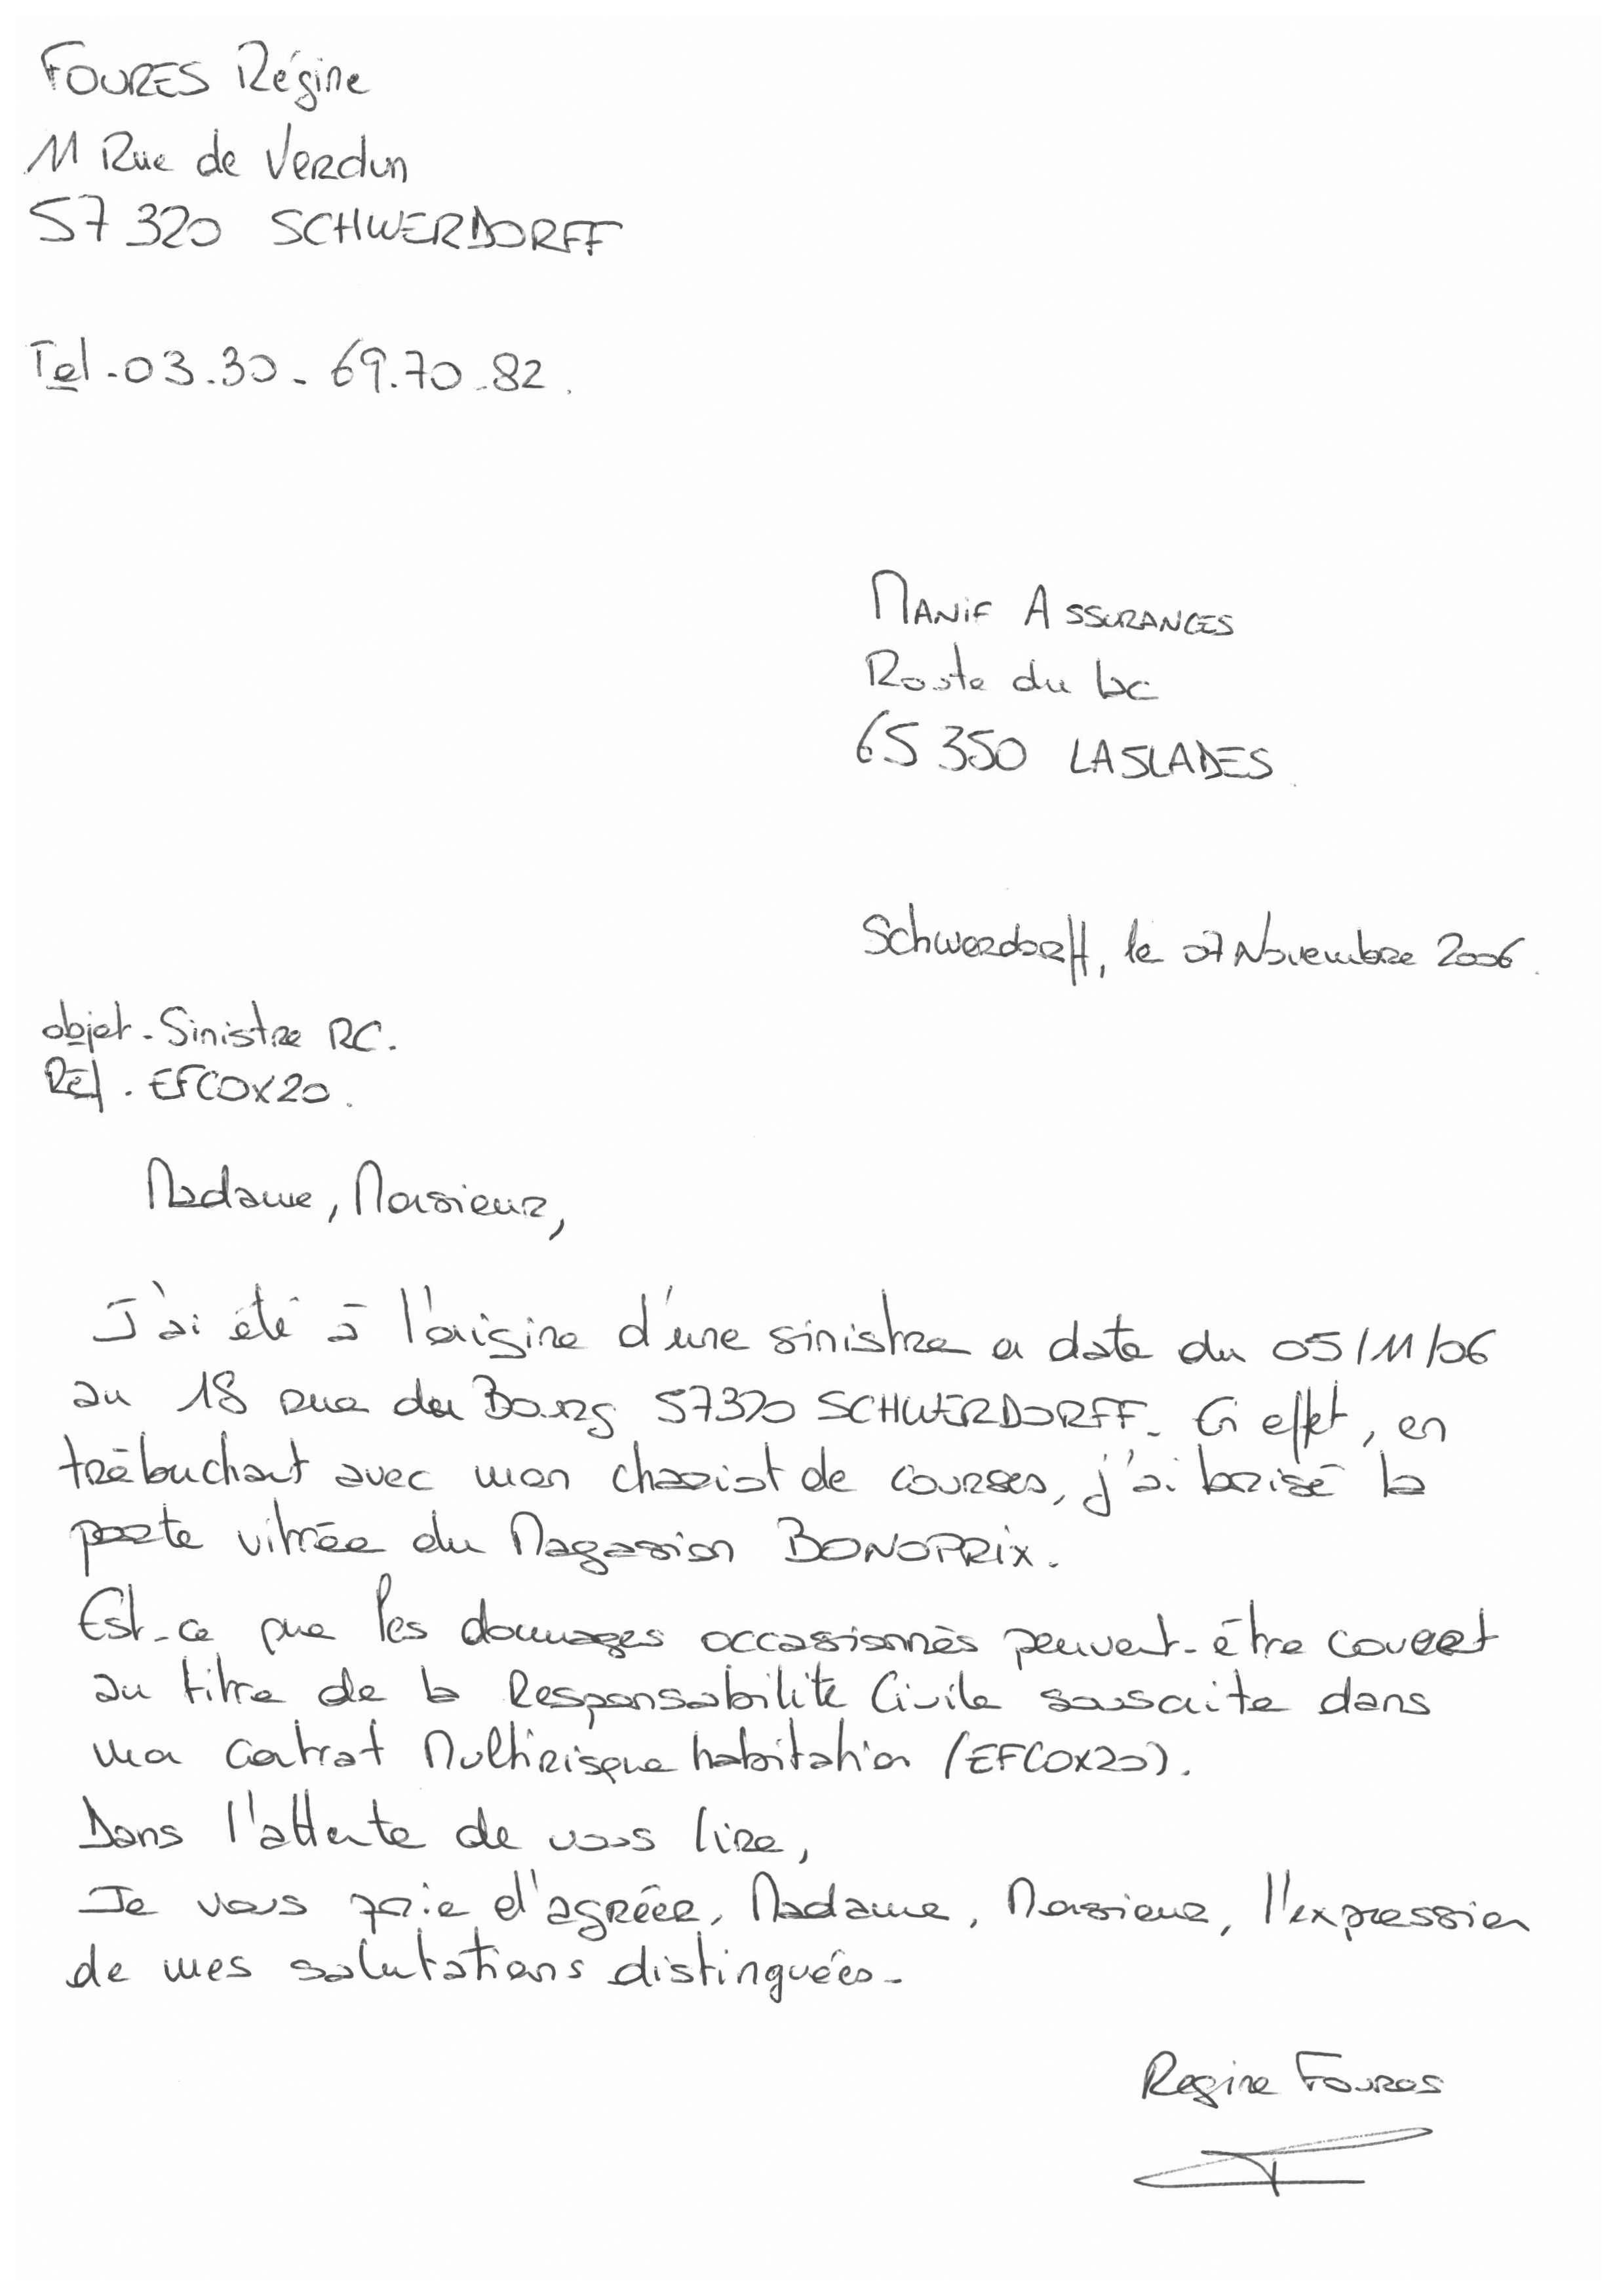 FOURES Régine
11 Rue de Verdun
57 320 SCHWERDORFF
Tel. 03.30.69.70.82.
MANIF ASSURANCES
Route du lac
65 350 LASLADES.
Schwerdorff, le 07 Novembre 2006.
objet. Sinistre RC.
Réf. EFCOX20.
Madame, Monsieur,
J'ai été à l'origine d'une sinistre a date du 05/11/06
au 18 rue du Bourg 57320 SCHWERDORFF. En effet, en
trébuchant avec mon chariot de courses, j'ai brisé la
porte vitrée du Magasion BONOPRIX.
Est-ce que les dommages occasionnés peuvent-être couvert
au titre de la Responsabilité Civile souscrite dans
mon contrat Multirisque habitation (EFCOX20).
Dans l'attente de vous lire,
Je vous prie d'agréer, Madame, Monsieur, l'expression
de mes salutations distinguées-
Regine Foures